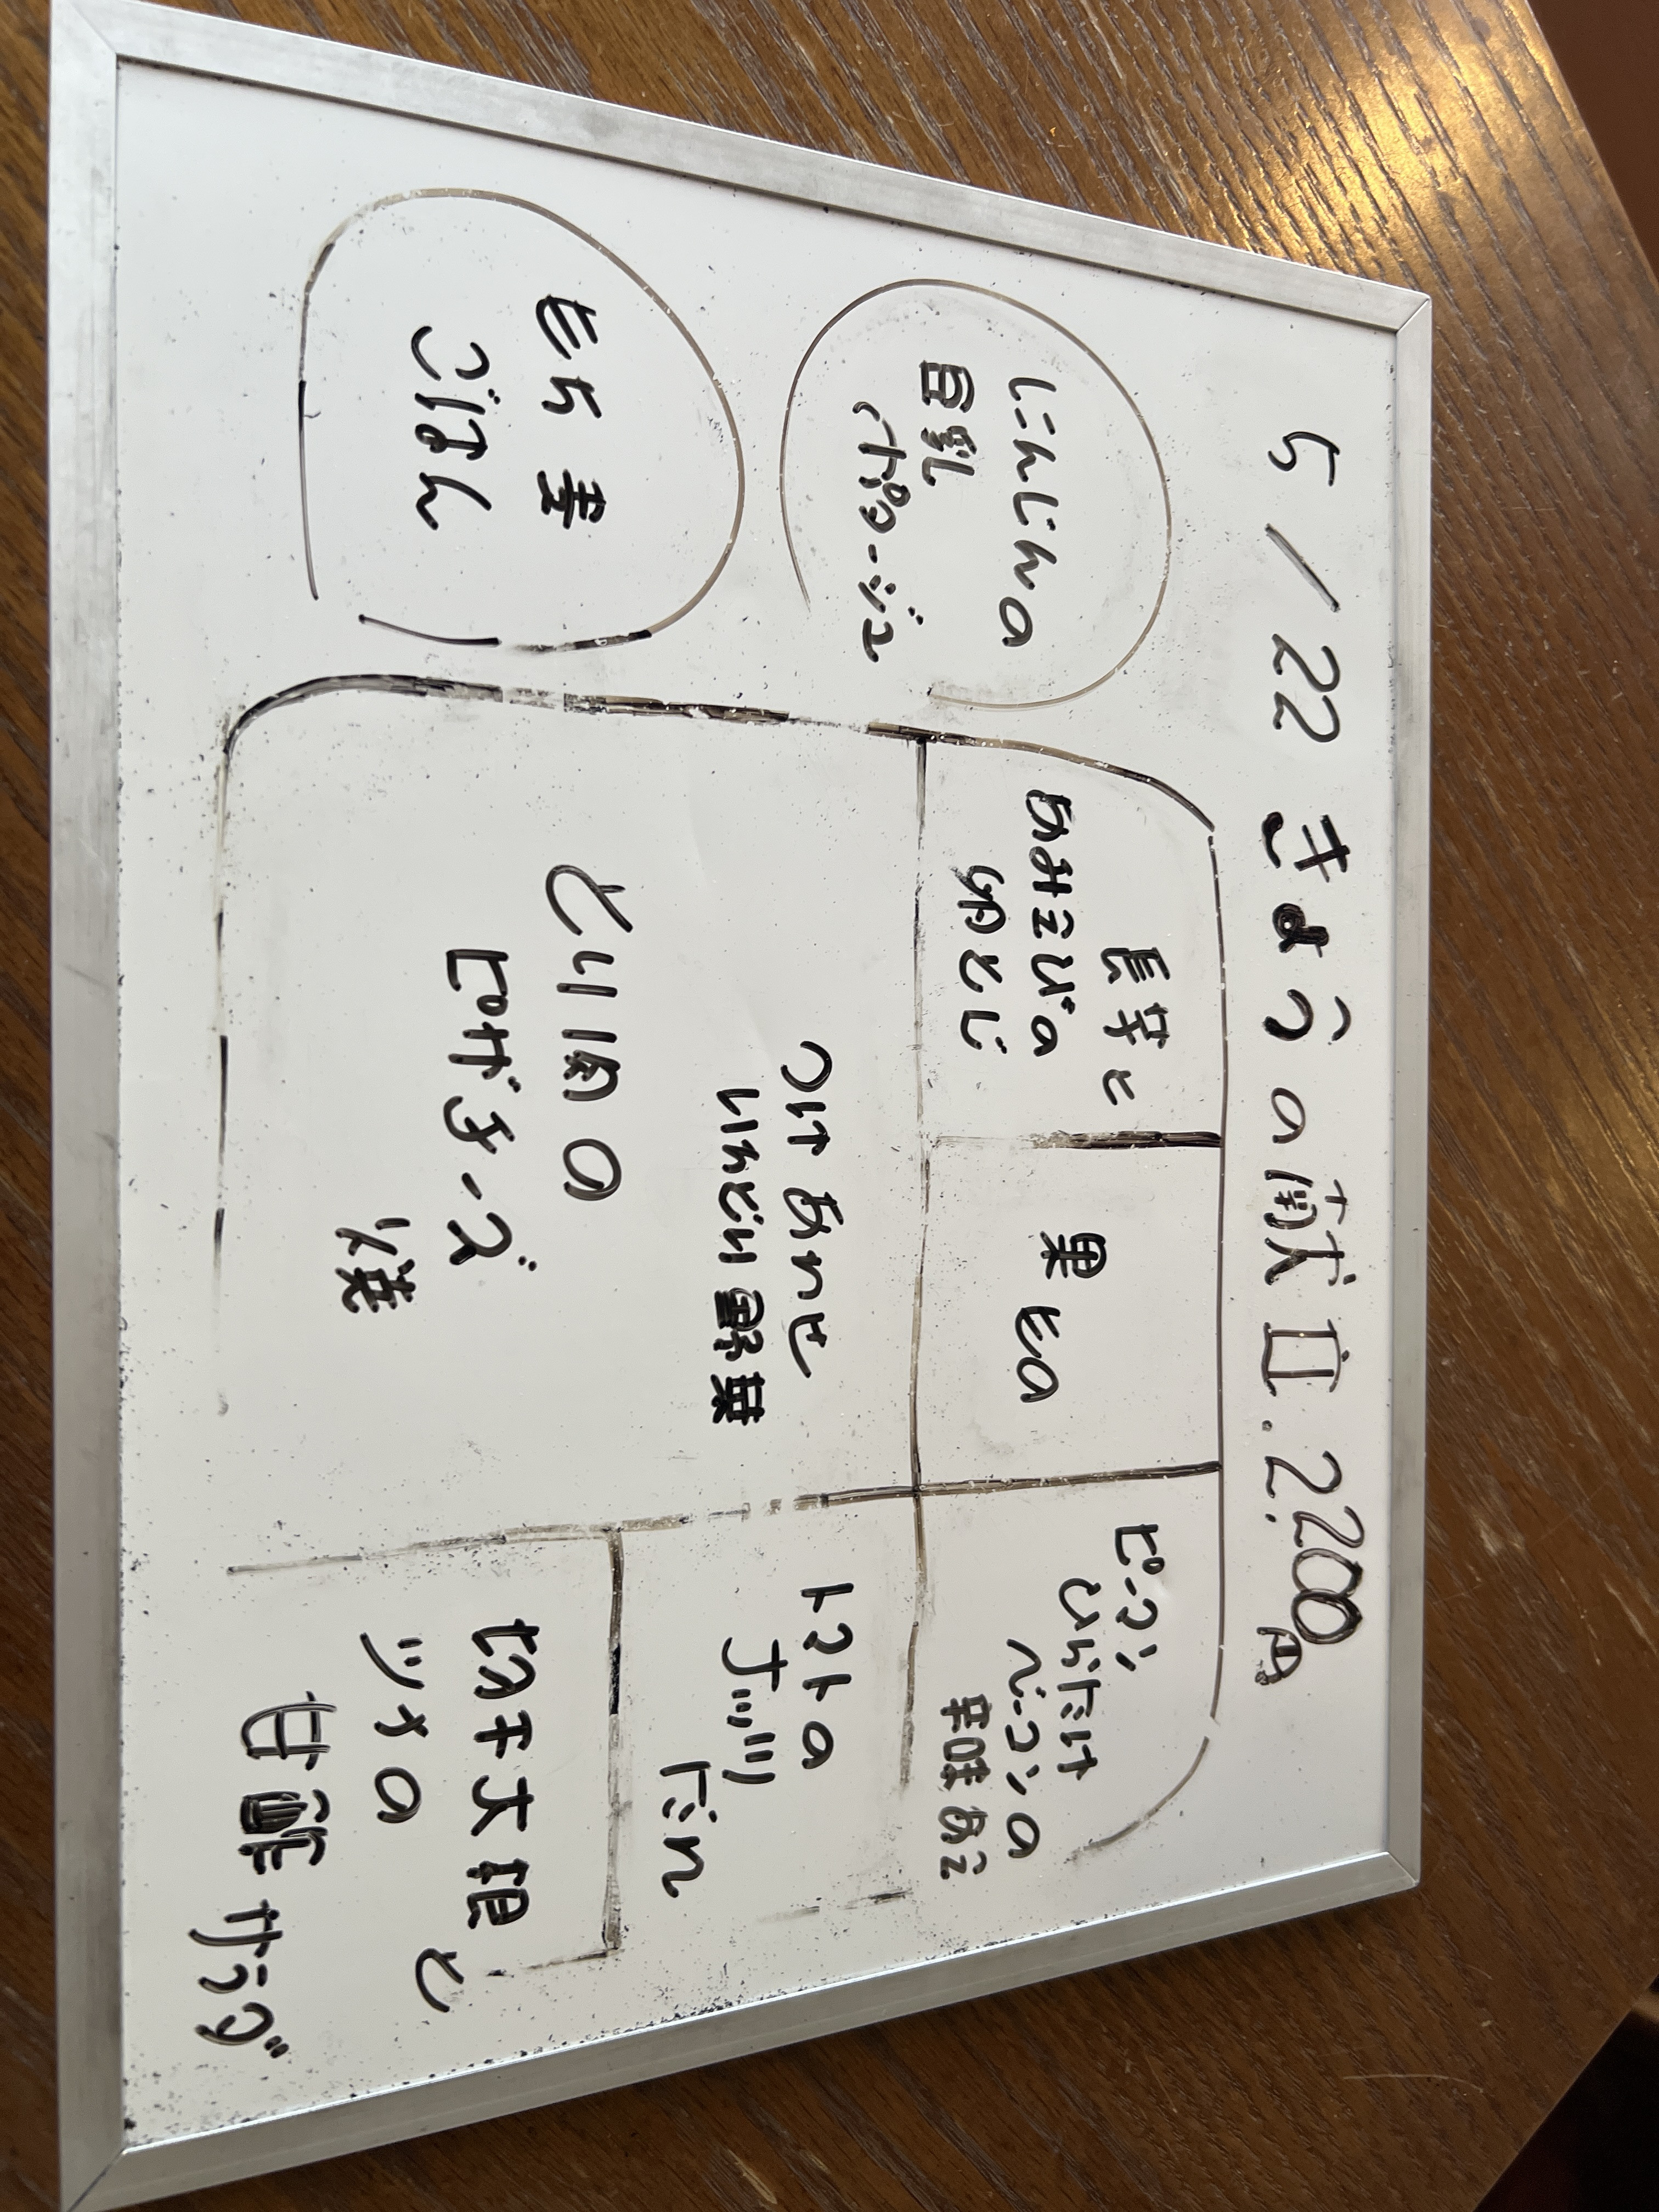 5/22 きょうの献立. 2200円
長芋と
あみえびの
卵とじ
果もの
ピーマン
しいたけ
ベーコンの
辛味あえ
にんじんの
豆乳
ポタージュ
つけあわせ
いろどり野菜
とり肉の
ピザチーズ
焼
トマトの
ナッツ
だれ
もち麦
ごはん
切干大根と
ツナの
甘酢サラダ